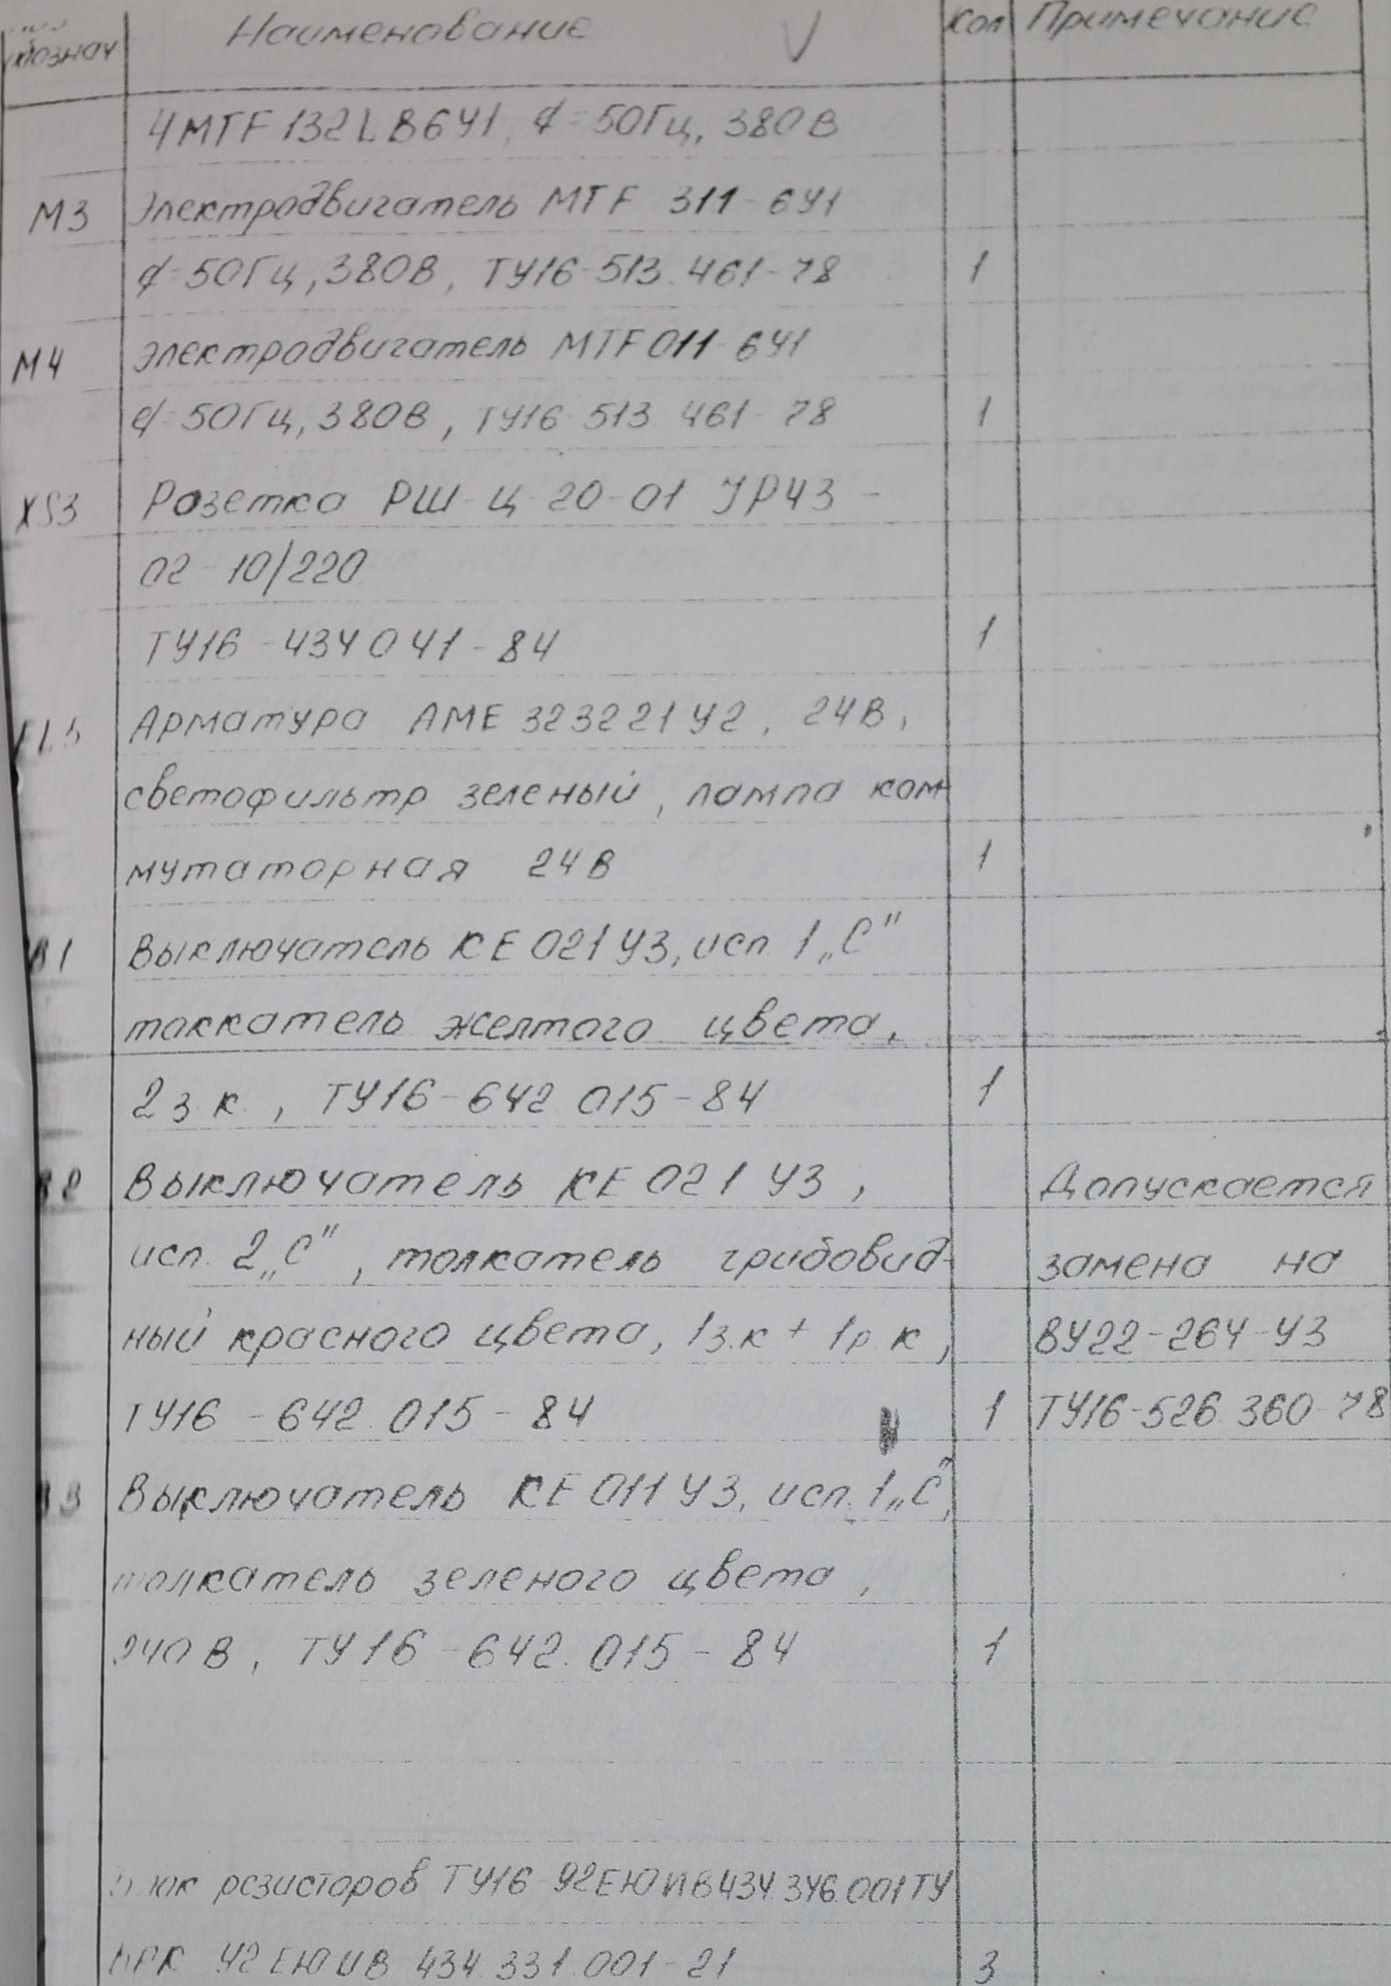 обознач Наименование V Кол Примечание
4MTF 132LB6У1, f=50Гц, 380В
М3 Электродвигатель MTF 311-6У1
f=50Гц, 380В, ТУ16-513.461-78 1
М4 Электродвигатель MTF 011-6У1
f=50Гц, 380В, ТУ16-513.461-78 1
XS3 Розетка РШ-Ц-20-01 JP43-
02-10/220
ТУ16-434.041-84 1
Арматура АМЕ 323221У2, 24В,
светофильтр зеленый, лампа ком-
мутаторная 24В 1
В1 Выключатель КЕ 021У3, исп. 1„С"
токкатель желтого цвета,
2 з.к., ТУ16-642.015-84 1
В2 Выключатель КЕ 021 У3, Допускается
исп. 2„С", толкатель грибовид- замена на
ный красного цвета, 1з.к + 1р.к, ВУ22-264-У3
ТУ16-642.015-84 1 ТУ16-526.360-78
В3 Выключатель КЕ 011 У3, исп. 1„С",
толкатель зеленого цвета,
240В, ТУ16-642.015-84 1
Блок резисторов ТУ16-92ЕЮИВ434.346.001ТУ
БРК У2 ЕЮИВ 434.331.001-21 3